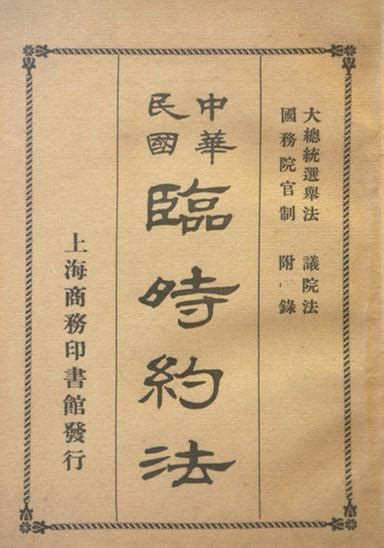 大總統選舉法　議院法
國務院官制　附錄
中華民國
臨時約法
上海商務印書館發行